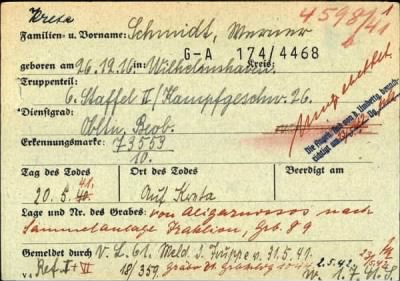 Kreta
4598/41
Familien- u. Vorname: Schmidt, Werner
G-A 174/4468
geboren am 26.12.16 in: Wilhelmshaven Kreis:
Truppenteil:
6. Staffel II/Kampfgeschw. 26.
Dienstgrad:
Obltn. Beob.
Erkennungsmarke: 73553
10.
Tag des Todes Ort des Todes Beerdigt am
20.5.40. 41. Auf Kreta
Lage und Nr. des Grabes: von Aligarnossos nach
Sammelanlage Iraklion, Grb. 89
Gemeldet durch V.L. 61. Meld. d. Truppe v. 31.5.41.
v. Ref. I + VI 18/359. 2.5.42.
v. 1.7.41.